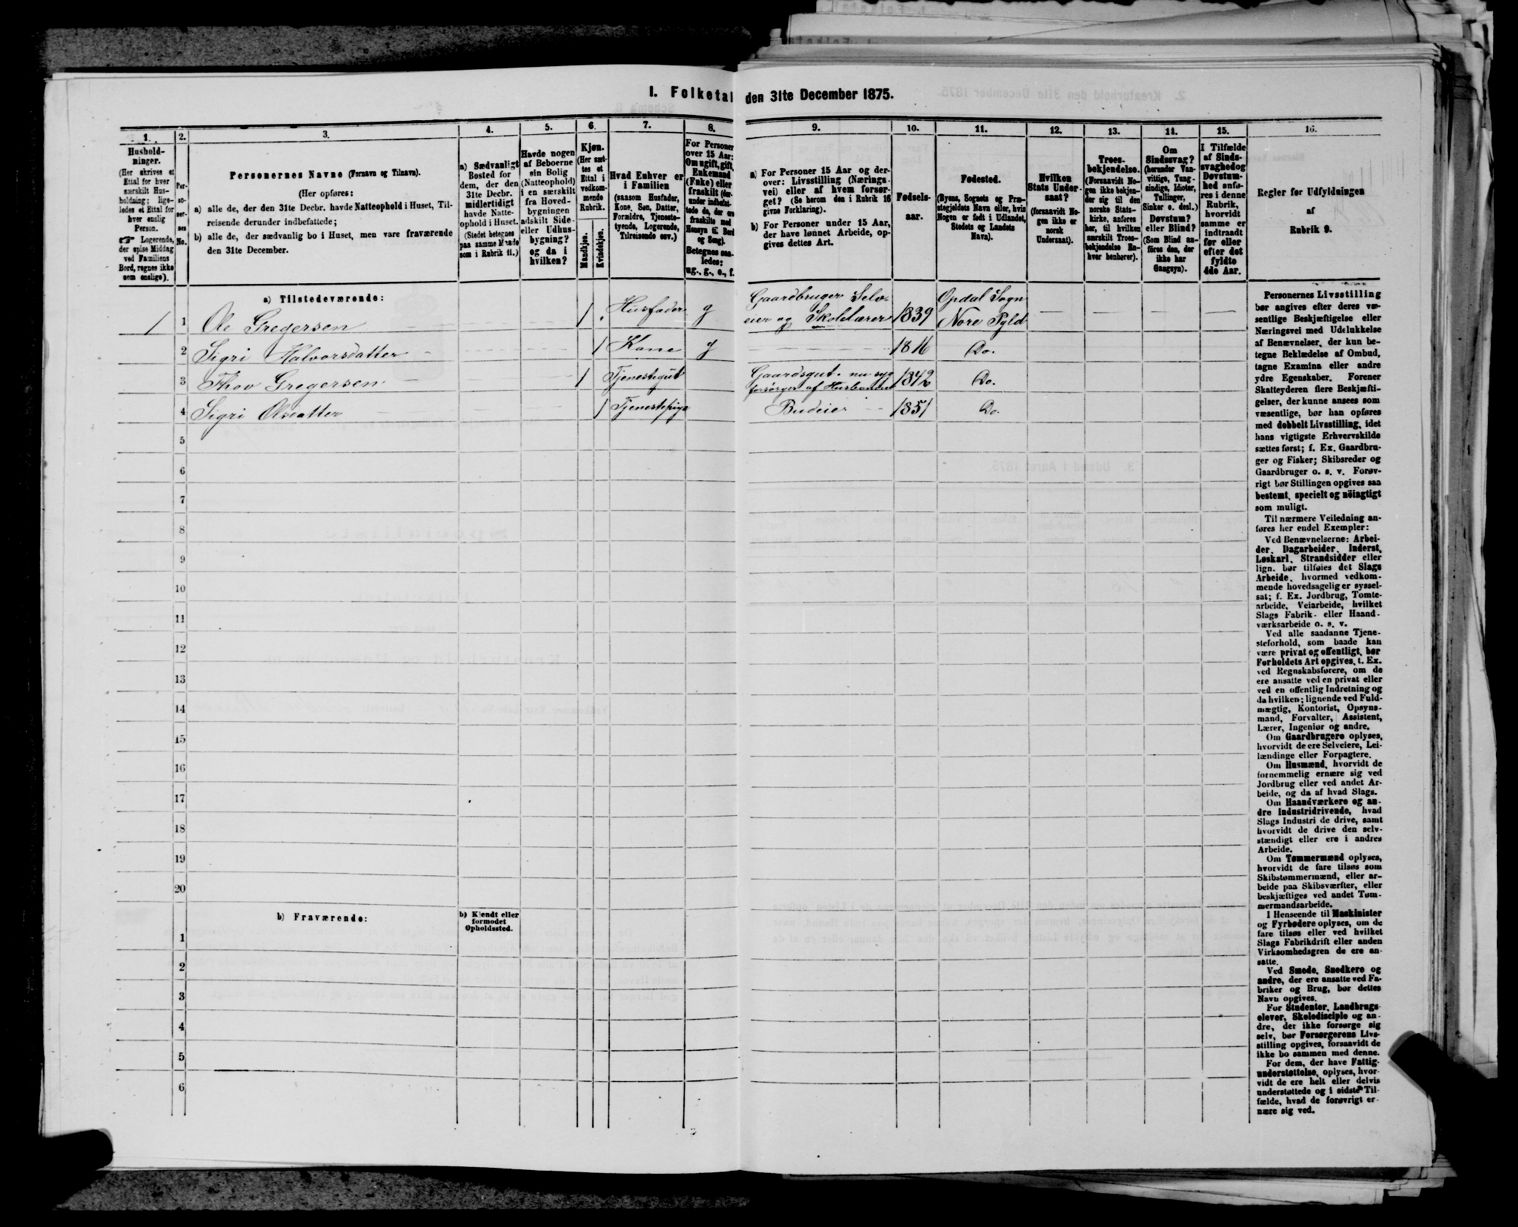 I. Folketal den 31te December 1875.
1.
Hushold-
ninger.
(Her skrives et
Ettal for hver
særskilt Hus-
holdning; lige-
ledes et Ettal for
hver enslig
Person.
Logerende,
der spise Middag
ved Familiens
Bord, regnes ikke
som enslige).
2.
Per-
soner-
nes
No.
3.
Personernes Navne (Fornavn og Tilnavn).
(Her opføres:
a) alle de, der den 31te Decbr. havde Natteophold i Huset, Til-
reisende derunder indbefattede;
b) alle de, der sædvanlig bo i Huset, men vare fraværende
den 31te December.
4.
a) Sædvanligt
Bosted for
dem, der den
31te Decbr.
midlertidigt
havde Natte-
ophold i Huset.
(Stedet betegnes
paa samme Maade
som i Rubrik 11.)
5.
Havde nogen
af Beboerne
sin Bolig
(Natteophold)
i en særskilt
fra Hoved-
bygningen
adskilt Side-
eller Udhus-
bygning?
og da i
hvilken?
6.
Kjøn.
(Her sæt-
tes et
Ettal i
vedkom-
mende
Rubrik.)
Mandkjøn.
Kvindekjøn.
7.
Hvad Enhver er
i Familien
(saasom Husfader,
Kone, Søn, Datter,
Forældre, Tjeneste-
tyende, Logerende,
Tilreisende osv.)
8.
For Personer
over 15 Aar:
Om ugift, gift,
Enkemand
(Enke) eller
fraskilt
Betegnes saa-
ledes:
ug., g., e., f.
9.
a) For Personer 15 Aar og der-
over: Livsstilling (Nærings-
vei) eller af hvem forsør-
get? (Se herom den i Rubrik 16
givne Forklaring).
b) For Personer under 15 Aar,
der have lønnet Arbeide, op-
gives dettes Art.
10.
Fødsels-
aar.
11.
Fødested.
(Byens, Sognets og Præ-
stegjeldets Navn eller, hvis
Nogen er født i Udlandet,
Stedets og Landets
Navn).
12.
Hvilken
Stats Under-
saat?
(forsaavidt No-
gen ikke er
norsk
Undersaat).
13.
Troes-
bekjendelse.
(Forsaavidt No-
gen ikke bekjen-
der sig til den
norske Stats-
kirke, anføres
her, til hvilken
særskilt Troes-
bekjendelse En-
hver henhører).
14.
Om
Sindssvag?
(herunder Van-
vittige, Tung-
sindige, Idioter,
Tullinger,
Sinker o. desl.)
Døvstum?
eller Blind?
(Som Blind an-
føres den, der
ikke har
Gangsyn).
15.
I Tilfælde
af Sinds-
svaghed og
Døvstum-
hed anfø-
res i denne
Rubrik,
hvorvidt
samme er
indtraadt
før eller
efter det
fyldte
4de Aar.
16.
Regler før Udfyldningen
af
Rubrik 9.
a) Tilstedeværende:
1 1 Ole Gregersen 1 Husfader g Gaardbruger Selv-
eier og Skolelærer 1839 Opdal Sogn
Nore Pgld
2 Sigri Halvorsdatter 1 Kone g 1816 Do.
3 Thov Gregersen 1 Tjenestegut Gaardsgut. nu syg
forsørges af Husbonden 1842 Do.
4 Sigri Olsdatter 1 Tjenestepige Budeier 1851 Do.
5
6
7
8
9
10
11
12
13
14
15
16
17
18
19
20
b) Fraværende:
b) Kjendt eller
formodet
Opholdssted.
1
2
3
4
5
6
Personernes Livsstilling
bør angives efter deres væ-
sentlige Beskjæftigelse eller
Næringsvei med Udelukkelse
af Benævnelser, der kun be-
tegne Beklædelse af Ombud,
tagne Examina eller andre
ydre Egenskaber. Forener
Skatteyderen flere Beskjæfti-
gelser, der kunne ansees som
væsentlige, bør han opføres
med dobbelt Livsstilling, idet
hans vigtigste Erhvervskilde
sættes først; f. Ex. Gaardbru-
ger og Fisker; Skibsreder og
Gaardbruger o. s. v. Forøv-
rigt bør Stillingen opgives saa
bestemt, specielt og nöiagtigt
som muligt.
Til nærmere Veiledning an-
føres her endel Exempler:
Ved Benævnelserne: Arbei-
der, Dagarbeider, Inderst,
Løskarl, Strandsidder eller
lign. bør tilføies det Slags
Arbeide, hvormed vedkom-
mende hovedsagelig er syssel-
sat; f. Ex. Jordbrug, Tomte-
arbeide, Veiarbeide, hvilket
Slags Fabrik- eller Haand-
værksarbeide o. s. v.
Ved alle saadanne Tjene-
steforhold, som baade kan
være privat og offentligt, bør
Forholdets Art opgives, t. Ex.
ved Regnskabsførere, om de
ere ansatte ved en privat eller
ved en offentlig Indretning og
da hvilken; lignende ved Fuld-
mægtig, Kontorist, Opsyns-
mand, Forvalter, Assistent,
Lærer, Ingeniør og andre.
Om Gaardbrugere oplyses,
hvorvidt de ere Selveiere, Lei-
lændinge eller Forpagtere.
Om Husmænd, hvorvidt de
fornemmelig ernære sig ved
Jordbrug eller ved andet Ar-
beide, og da af hvad Slags.
Om Haandværkere og an-
dre Industridrivende, hvad
Slags Industri de drive, samt
hvorvidt de drive den selv-
stændigt eller ere i andres
Arbeide.
Om Tømmermænd oplyses,
hvorvidt de fare tilsøs som
Skibstømmermænd, eller ar-
beide paa Skibsværfter, eller
beskjæftiges ved andet Tøm-
mermandsarbeide.
I Henseende til Maskinister
og Fyrbødere oplyses, om de
fare tilsøs eller ved hvilket
Slags Fabrikdrift eller anden
Virksomhedsgren de ere an-
satte.
Ved Smede, Snedkere og
andre, der ere ansatte ved Fa-
briker og Brug, bør dettes
Navn opgives.
For Studenter, Landbrugs-
elever, Skoledisciple og an-
dre, der ikke forsørge sig
selv, bør Forsørgerens Livs-
stilling opgives, forsaavidt de
ikke bo sammen med denne.
For dem, der have Fattig-
understøttelse, oplyses, hvor-
vidt de ere helt eller delvis
understøttede og i sidste Til-
fælde, hvad de forøvrigt er-
nære sig ved.